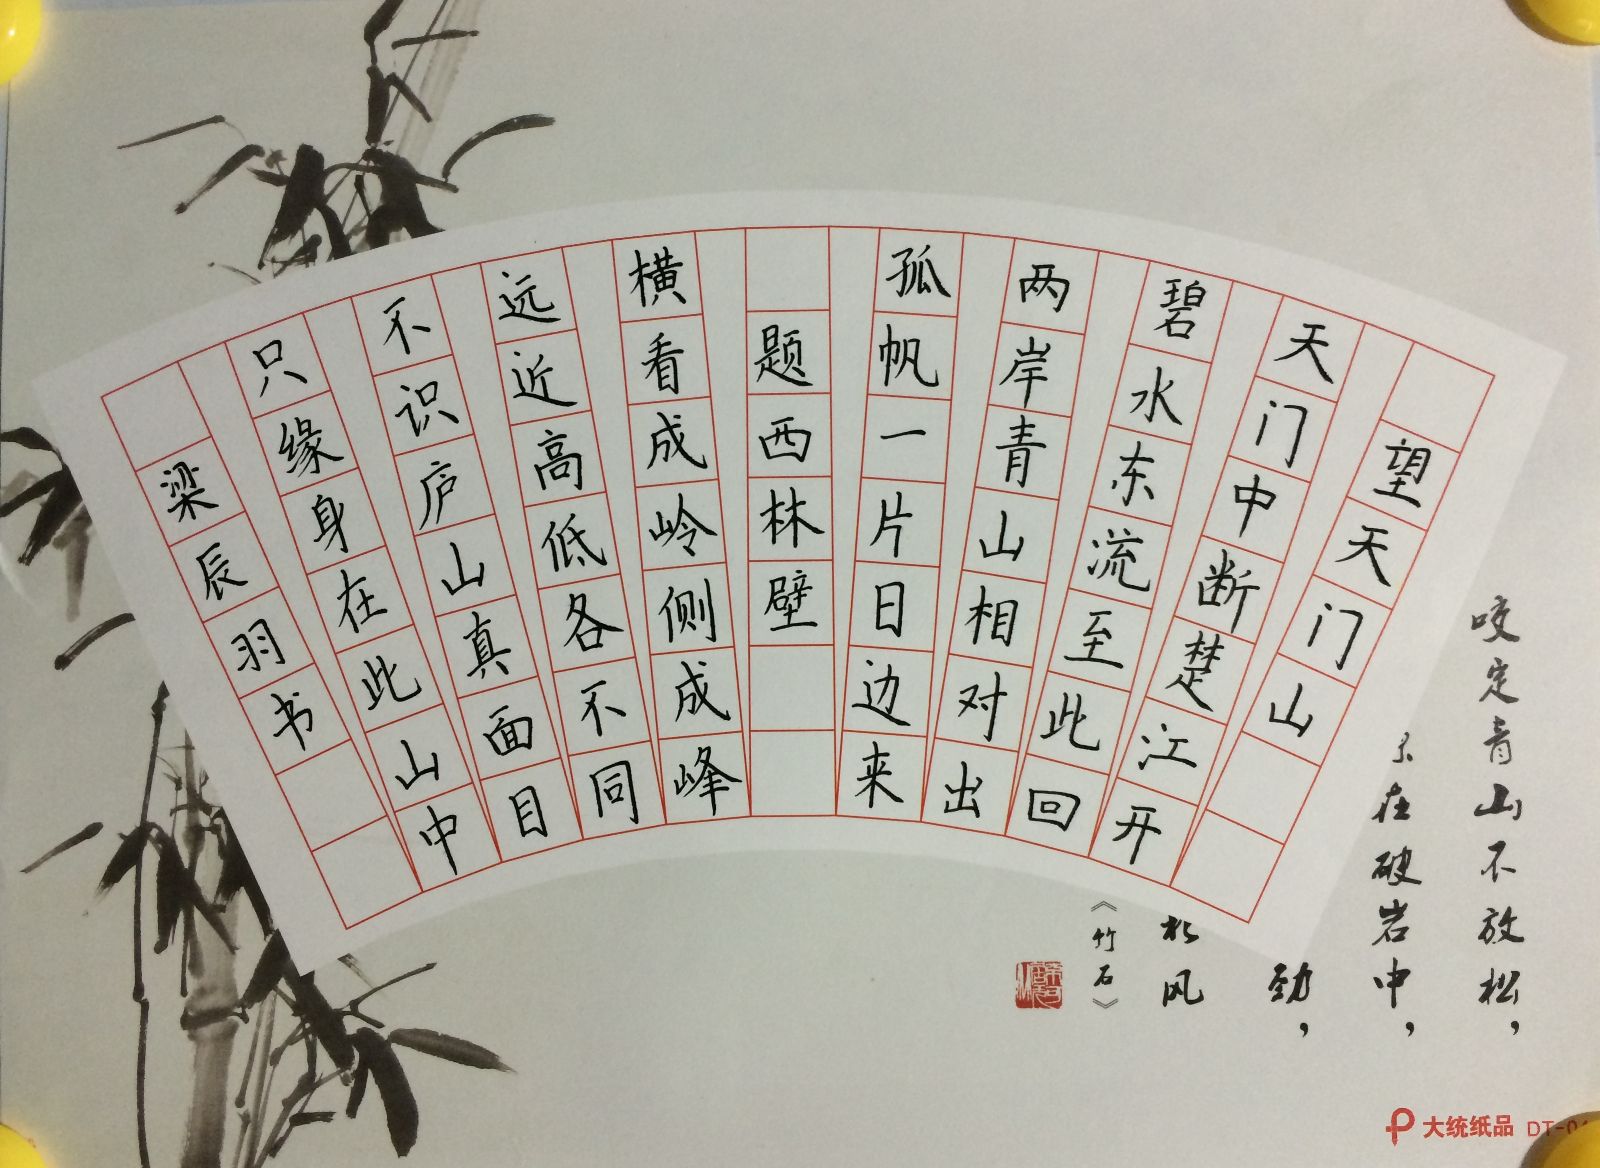 望天门山
天门中断楚江开
碧水东流至此回
两岸青山相对出
孤帆一片日边来
题西林壁
横看成岭侧成峰
远近高低各不同
不识庐山真面目
只缘身在此山中
梁辰羽书
咬定青山不放松，
在破岩中，
劲，
风
《竹石》
大统纸品 DT-04